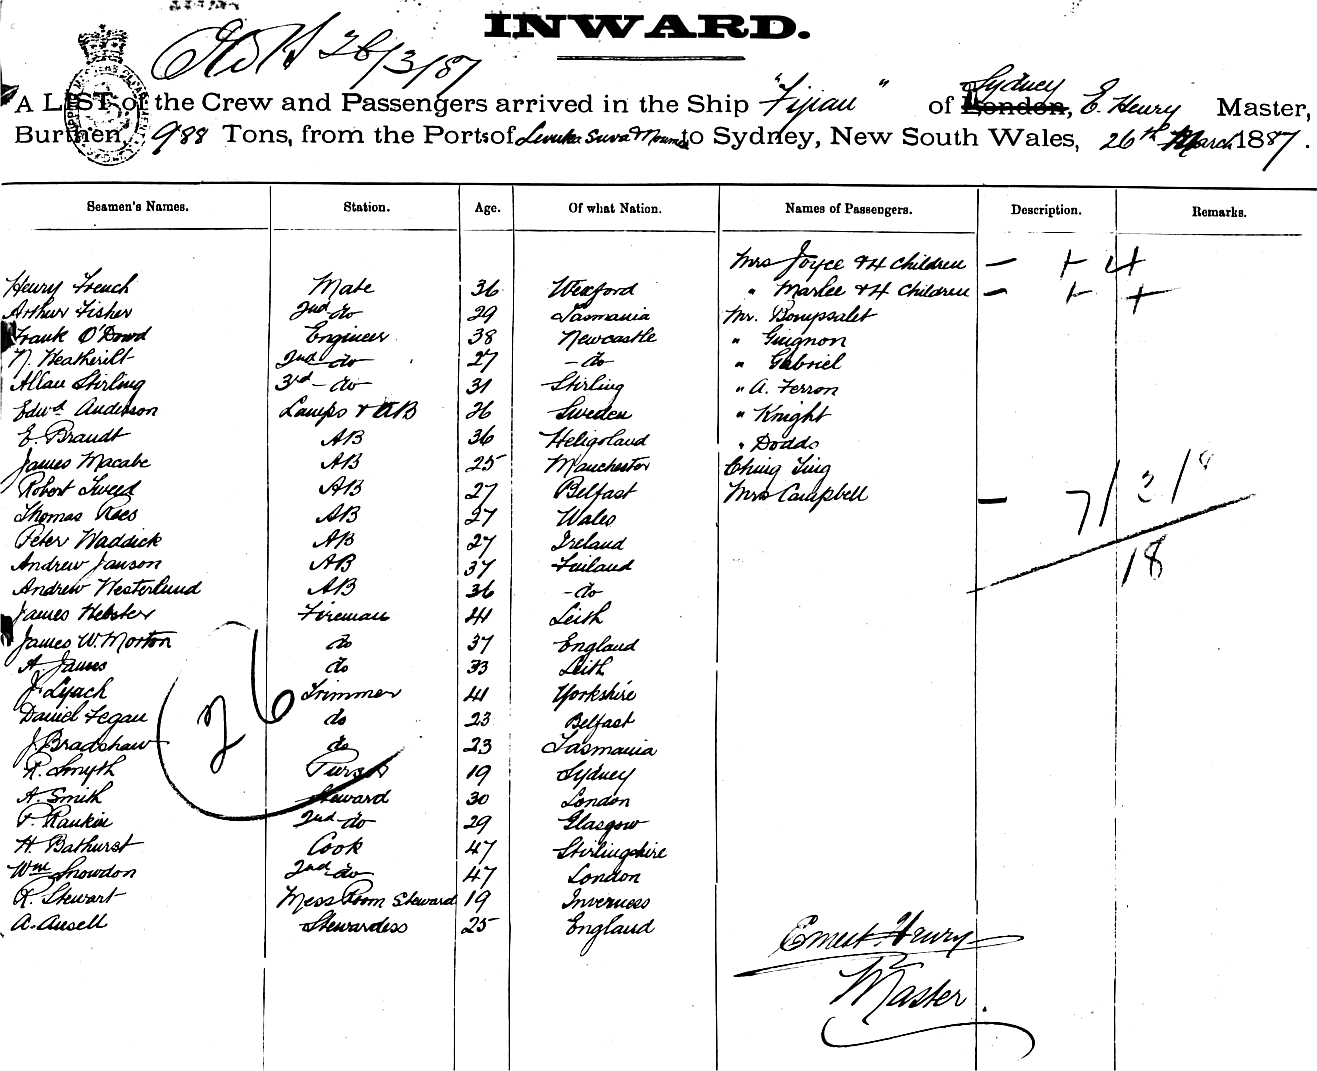 INWARD.
26/3/87
A LIST of the Crew and Passengers arrived in the Ship "Fijian" of London, Sydney E. Henry Master,
Burthen, 988 Tons, from the Ports of Levuka Suva & to Sydney, New South Wales, 26th March 1887.
Seamen's Names. Station. Age. Of what Nation. Names of Passengers. Description. Remarks.
Mrs Joyce & 4 Children — + 4
Henry French Mate 36 Wexford " Marlee & 4 Children — + +
Arthur Fisher 2nd do 29 Tasmania Mr. Bompsalet
Frank O'Dowd Engineer 38 Newcastle " Guignon
N. Heatherilt 2nd do 27 - do " Gabriel
Allan Stirling 3rd - do 31 Stirling " A. Ferron
Edwd Anderson Lamps & AB 26 Sweden " Knight
E. Brandt AB 36 Heligoland " Dodds
James Macabe AB 25 Manchester Ching Ting
Robert Tweed AB 27 Belfast Mrs Campbell — 7/3/8
Thomas Rees AB 27 Wales
Peter Waddick AB 27 Ireland 18
Andrew Janson AB 37 Finland
Andrew Westerlund AB 36 - do
James Webster Fireman 41 Leith
James W. Morton do 37 England
A. James do 33 Leith
J. Lynch Trimmer 41 Yorkshire
Daniel Fegan do 23 Belfast
J. Bradshaw do 23 Tasmania
26
R. Smyth Purser 19 Sydney
A. Smith Steward 30 London
P. Rankin 2nd do 29 Glasgow
H. Bathurst Cook 47 Stirlingshire
Wm Snowdon 2nd do 47 London
R. Stewart Mess Room Steward 19 Inverness
A. Ansell Stewardess 25 England
Ernest Henry
Master.